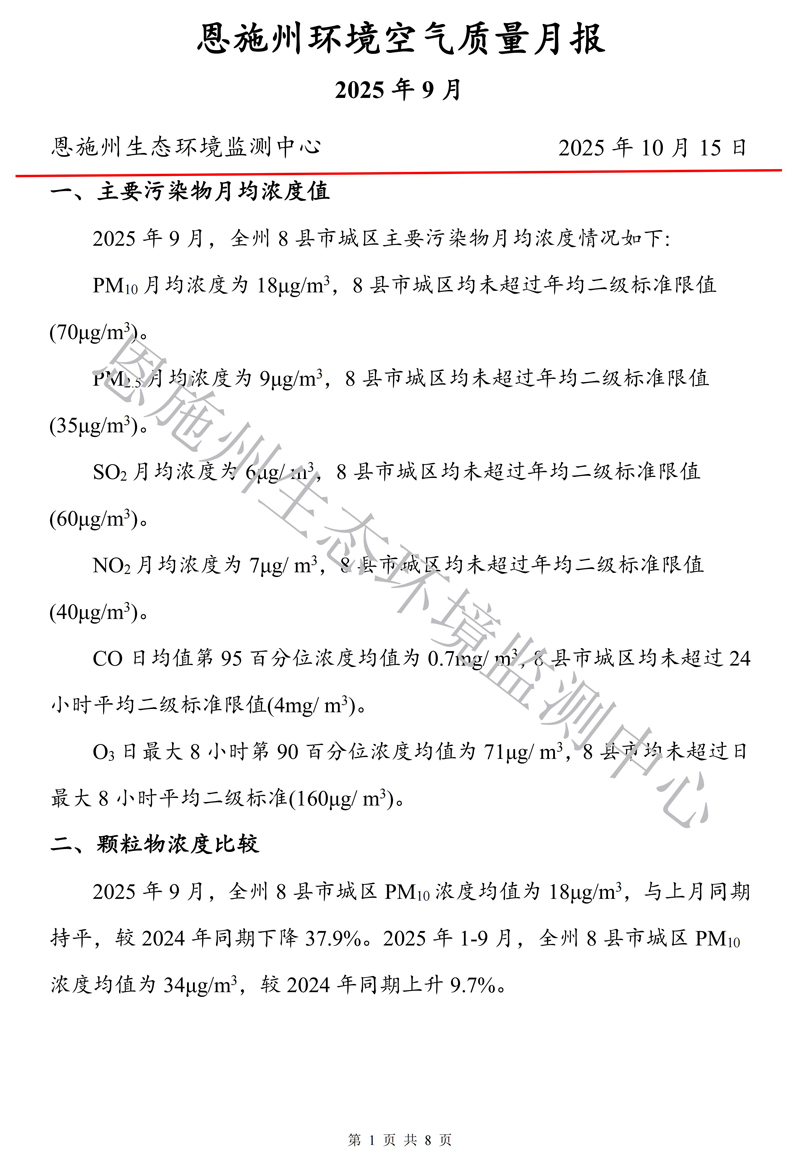 恩施州环境空气质量月报
2025 年 9 月
恩施州生态环境监测中心 2025 年 10 月 15 日
一、主要污染物月均浓度值
2025 年 9 月，全州 8 县市城区主要污染物月均浓度情况如下:
PM₁₀ 月均浓度为 18μg/m³，8 县市城区均未超过年均二级标准限值
(70μg/m³)。
PM₂.₅ 月均浓度为 9μg/m³，8 县市城区均未超过年均二级标准限值
(35μg/m³)。
SO₂ 月均浓度为 6μg/ m³，8 县市城区均未超过年均二级标准限值
(60μg/m³)。
NO₂ 月均浓度为 7μg/ m³，8 县市城区均未超过年均二级标准限值
(40μg/m³)。
CO 日均值第 95 百分位浓度均值为 0.7mg/ m³，8 县市城区均未超过 24
小时平均二级标准限值(4mg/ m³)。
O₃ 日最大 8 小时第 90 百分位浓度均值为 71μg/ m³，8 县市均未超过日
最大 8 小时平均二级标准(160μg/ m³)。
二、颗粒物浓度比较
2025 年 9 月，全州 8 县市城区 PM₁₀ 浓度均值为 18μg/m³，与上月同期
持平，较 2024 年同期下降 37.9%。2025 年 1-9 月，全州 8 县市城区 PM₁₀
浓度均值为 34μg/m³，较 2024 年同期上升 9.7%。
恩施州生态环境监测中心
第 1 页 共 8 页